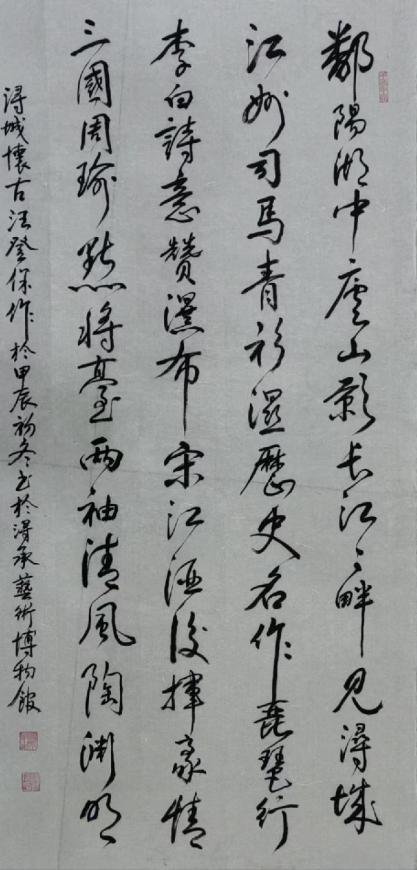 鄱陽湖中廬山影長江江畔見潯城
江州司馬青衫濕歷史名作琵琶行
李白詩意贊瀑布宋江酒後揮豪情
三國周瑜點將臺兩袖清風陶淵明
潯城懷古汪登保作於甲辰初冬書於潯承藝術博物館